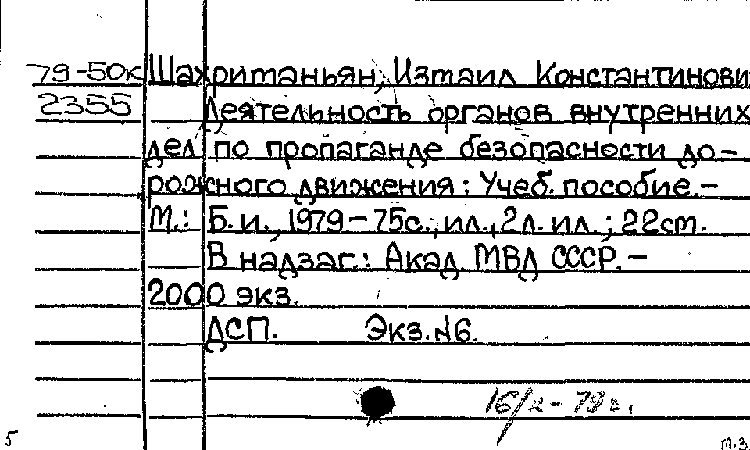 79-50к Шахританьян, Измаил Константинови
2355 Деятельность органов внутренних
дел по пропаганде безопасности до-
рожного движения: Учеб. пособие.-
М.: Б.и., 1979-75с., ил., 2л. ил.; 22см.
В надзаг.: Акад. МВД СССР.-
2000 экз.
ДСП. Экз.№6.
16/х-79г.
5 М.З